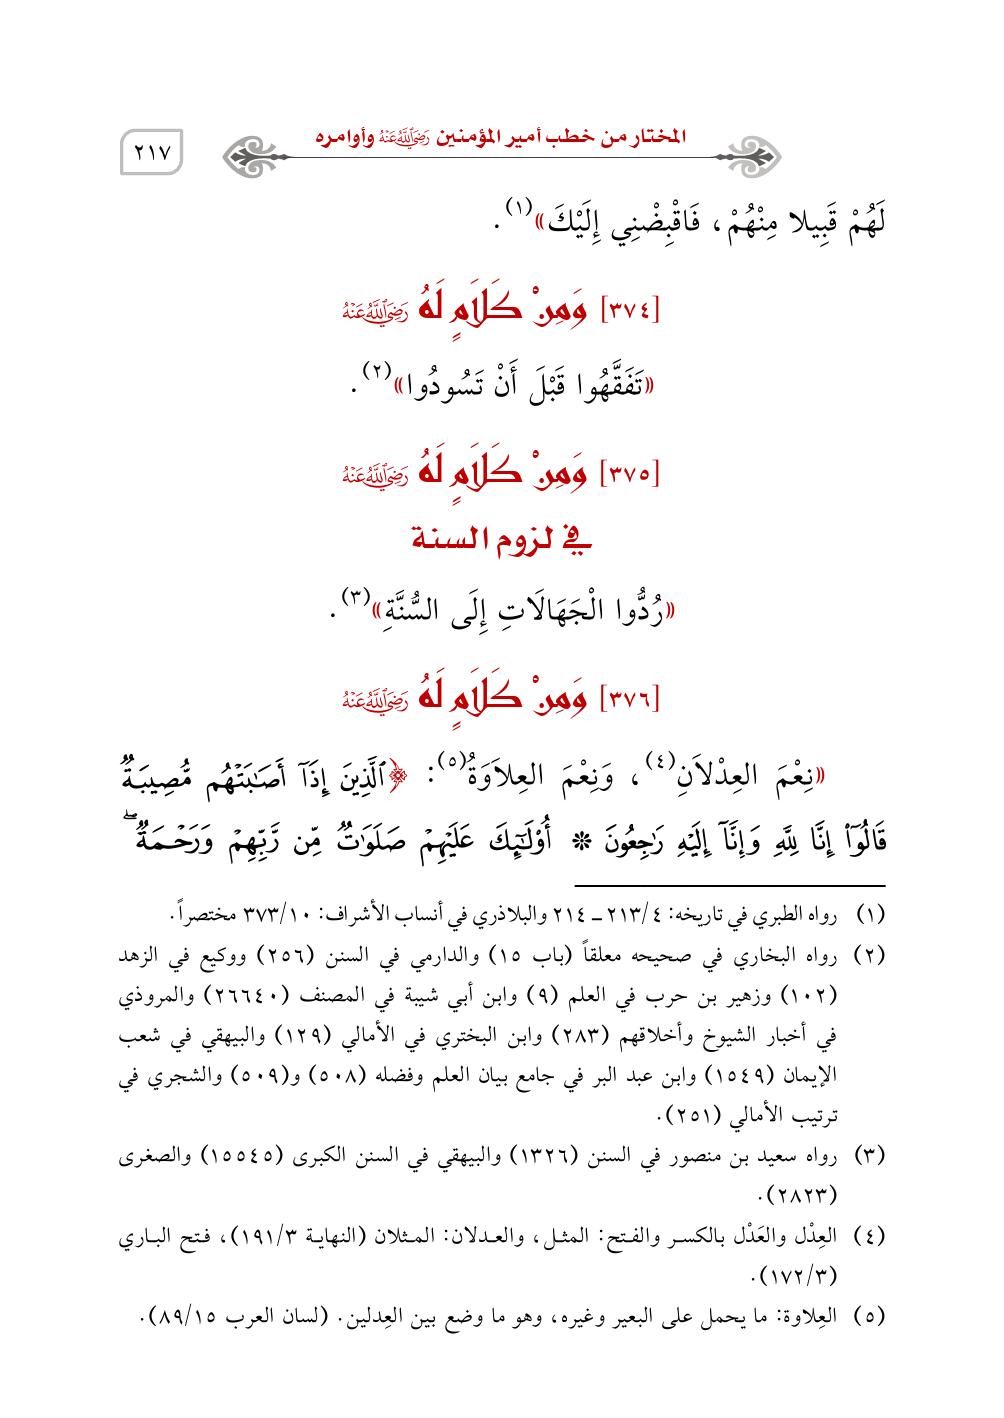 المختار من خطب أمير المؤمنين رَضِيَ اللَّهُ عَنْهُ وأوامره
٢١٧
لَهُمْ قَبِيلا مِنْهُمْ، فَاقْبِضْنِي إِلَيْكَ»(١).
[٣٧٤] وَمِنْ كَلَامٍ لَهُ رَضِيَ اللَّهُ عَنْهُ
«تَفَقَّهُوا قَبْلَ أَنْ تَسُودُوا»(٢).
[٣٧٥] وَمِنْ كَلَامٍ لَهُ رَضِيَ اللَّهُ عَنْهُ
في لزوم السنة
«رُدُّوا الْجَهَالَاتِ إِلَى السُّنَّةِ»(٣).
[٣٧٦] وَمِنْ كَلَامٍ لَهُ رَضِيَ اللَّهُ عَنْهُ
«نِعْمَ العِدْلَانِ(٤)، وَنِعْمَ العِلَاوَةُ(٥): ﴿ٱلَّذِينَ إِذَآ أَصَٰبَتْهُم مُّصِيبَةٌ
قَالُوٓا۟ إِنَّا لِلَّهِ وَإِنَّآ إِلَيْهِ رَٰجِعُونَ * أُو۟لَٰٓئِكَ عَلَيْهِمْ صَلَوَٰتٌ مِّن رَّبِّهِمْ وَرَحْمَةٌ ۖ
(١) رواه الطبري في تاريخه: ٢١٣/٤ ـ ٢١٤ والبلاذري في أنساب الأشراف: ٣٧٣/١٠ مختصراً.
(٢) رواه البخاري في صحيحه معلقاً (باب ١٥) والدارمي في السنن (٢٥٦) ووكيع في الزهد
(١٠٢) وزهير بن حرب في العلم (٩) وابن أبي شيبة في المصنف (٢٦٦٤٠) والمروذي
في أخبار الشيوخ وأخلاقهم (٢٨٣) وابن البختري في الأمالي (١٢٩) والبيهقي في شعب
الإيمان (١٥٤٩) وابن عبد البر في جامع بيان العلم وفضله (٥٠٨) و(٥٠٩) والشجري في
ترتيب الأمالي (٢٥١).
(٣) رواه سعيد بن منصور في السنن (١٣٢٦) والبيهقي في السنن الكبرى (١٥٥٤٥) والصغرى
(٢٨٢٣).
(٤) العِدْل والعَدْل بالكسر والفتح: المثل، والعدلان: المثلان (النهاية ١٩١/٣)، فتح الباري
(١٧٢/٣).
(٥) العِلاوة: ما يحمل على البعير وغيره، وهو ما وضع بين العِدلين. (لسان العرب ٨٩/١٥).